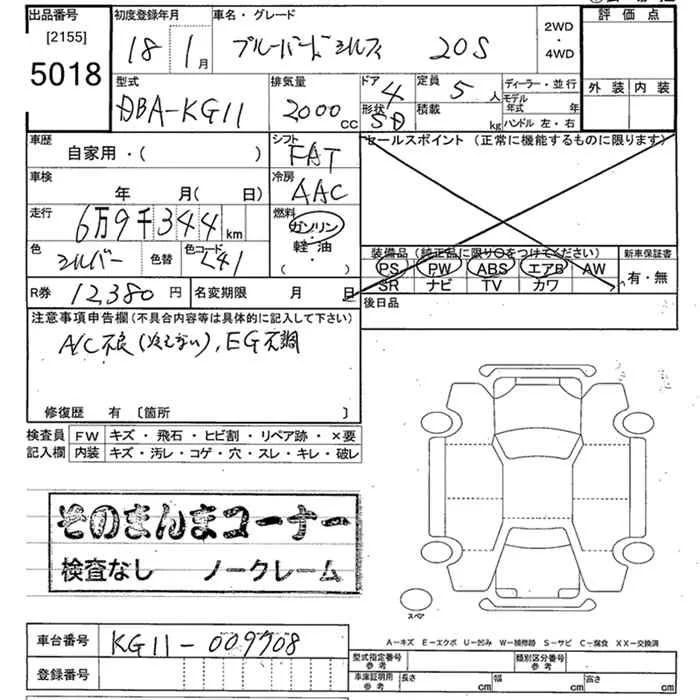 出品番号 初度登録年月 車名・グレード 評価点
[2155]
5018
18 1月 ブルーバードシルフィ 20S 2WD・4WD
型式 排気量 ドア 定員 ディーラー・並行 外装 内装
DBA-KG11 2000cc 4 5人 モデル年式 年
形状 SD 積載 kg ハンドル 左・右
車歴 シフト セールスポイント(正常に機能するものに限ります)
自家用・( ) FAT
車検 冷房
年 月(日) AAC
走行 燃料
6万9千344km ガソリン
軽・油
( )
色 色替 色コード 装備品(純正品に限り〇をつけてください) 新車保証書
シルバー L41 PS PW ABS エアB AW 有・無
SR ナビ TV カワ
R券 12,380円 名変期限 月 日
後日品
注意事項申告欄(不具合内容等は具体的に記入して下さい)
A/C不良(冷えない),EG不調
修復歴 有 〔箇所 〕
検査員 FW キズ・飛石・ヒビ割・リペア跡・×要
記入欄 内装 キズ・汚レ・コゲ・穴・スレ・キレ・破レ
そのまんまコーナー
検査なし ノークレーム
スペア
A-キズ E-エクボ U-凹み W-補修跡 S-サビ C-腐食 XX-交換済
車台番号 KG11-009708
登録番号
型式指定番号 参考 類別区分番号 参考
車庫証明用 参考 長さ cm 幅 cm 高さ cm